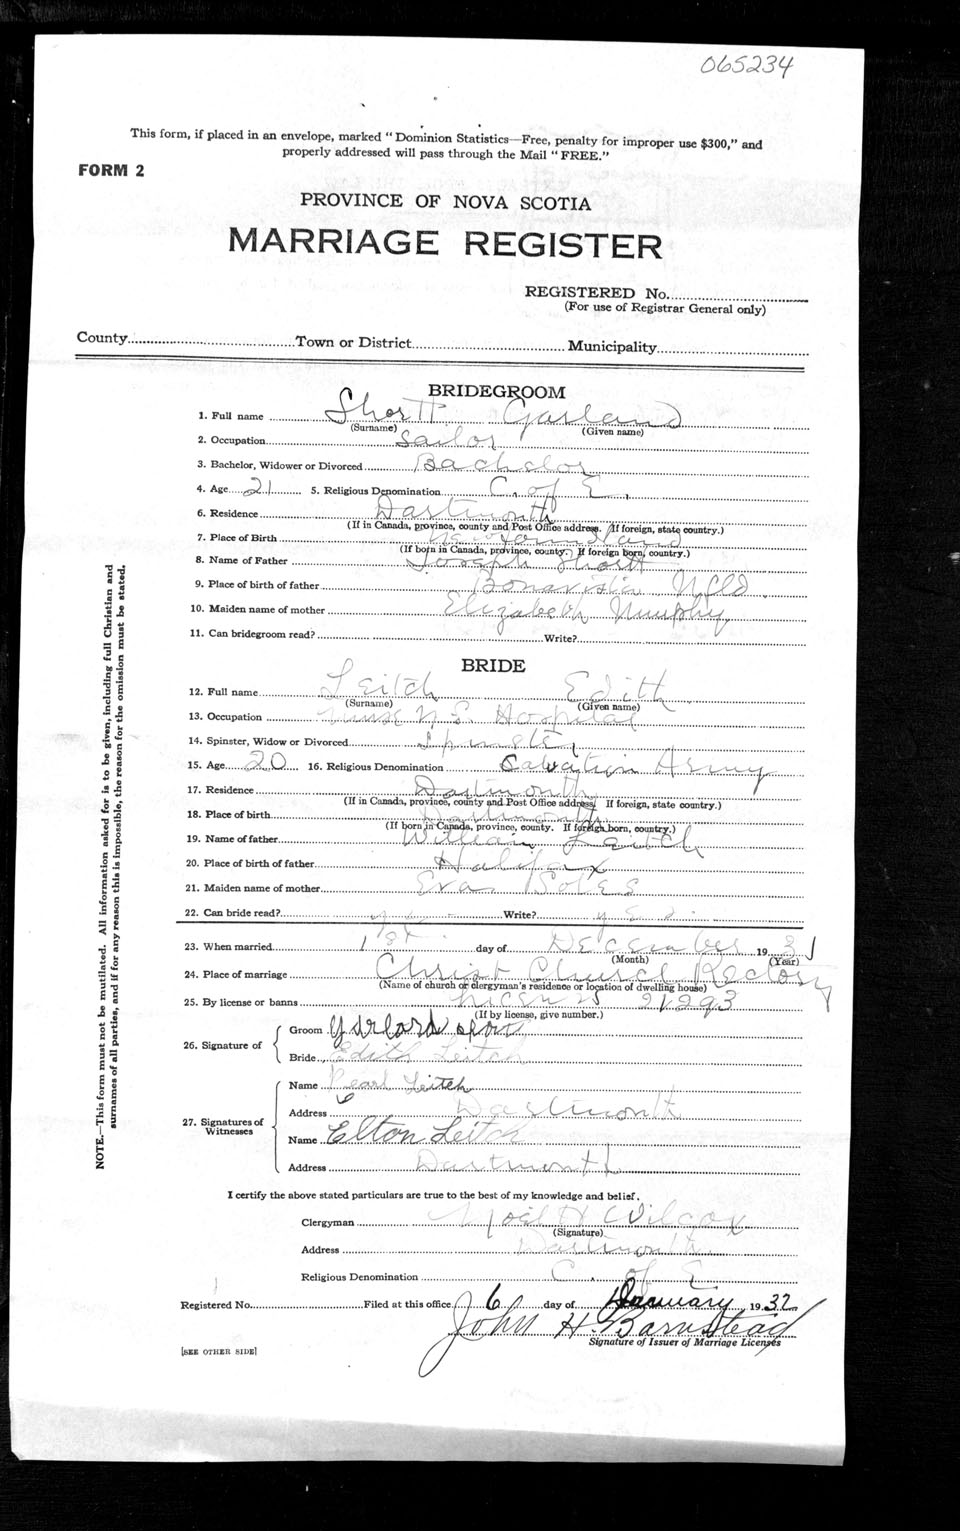 065234
This form, if placed in an envelope, marked "Dominion Statistics—Free, penalty for improper use $300," and
properly addressed will pass through the Mail "FREE."
FORM 2
PROVINCE OF NOVA SCOTIA
MARRIAGE REGISTER
REGISTERED No.
(For use of Registrar General only)
County Town or District Municipality
BRIDEGROOM
1. Full name Shortt Garland
(Surname) (Given name)
2. Occupation Sailor
3. Bachelor, Widower or Divorced Bachelor
4. Age 21 5. Religious Denomination C. of E.
6. Residence Dartmouth
(If in Canada, province, county and Post Office address. If foreign, state country.)
7. Place of Birth Newfoundland
(If born in Canada, province, county. If foreign born, country.)
8. Name of Father Joseph Shortt
9. Place of birth of father Bonavista Nfld
10. Maiden name of mother Elizabeth Murphy
11. Can bridegroom read? Write?
BRIDE
12. Full name Leitch Edith
(Surname) (Given name)
13. Occupation Nurse N.S. Hospital
14. Spinster, Widow or Divorced Spinster
15. Age 20 16. Religious Denomination Salvation Army
17. Residence Dartmouth
(If in Canada, province, county and Post Office address. If foreign, state country.)
18. Place of birth Dartmouth
(If born in Canada, province, county. If foreign born, country.)
19. Name of father William Leitch
20. Place of birth of father Halifax
21. Maiden name of mother Eva Boles
22. Can bride read? yes Write? yes.
23. When married 1st day of December 1931
(Month) (Year)
24. Place of marriage Christ Church Rectory
(Name of church or clergyman's residence or location of dwelling house)
25. By license or banns 21293
(If by license, give number.)
26. Signature of
Groom Garland Short
Bride Edith Leitch
27. Signatures of Witnesses
Name Pearl Leitch
Address Dartmouth
Name Elton Leitch
Address Dartmouth
I certify the above stated particulars are true to the best of my knowledge and belief.
Clergyman Noel H Wilcox
(Signature)
Address Dartmouth
Religious Denomination C. of E.
Registered No. Filed at this office 6 day of January 1932
John H. Barnstead
Signature of Issuer of Marriage Licenses
[SEE OTHER SIDE]
NOTE.—This form must not be mutilated. All information asked for is to be given, including full Christian and
surnames of all parties, and if for any reason this is impossible, the reason for the omission must be stated.